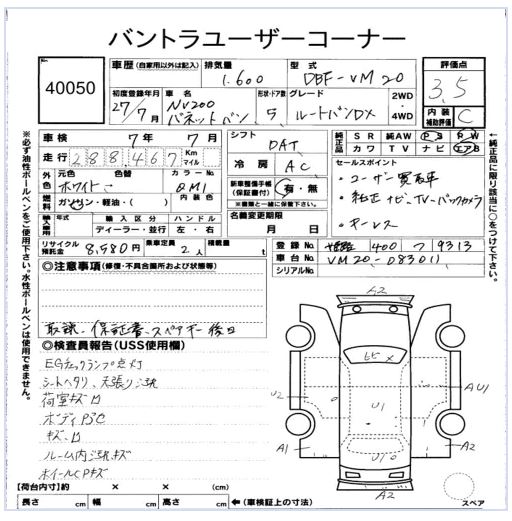 バントラユーザーコーナー
40050
車歴 (自家用以外は記入) 排気量 型式 評価点
1.600 DBF-VM20 3.5
初度登録年月 車名 形状・ドア数 グレード 2WD 内装補助評価 C
27/7月 NV200 バネットバン 5 ルートバンDX 4WD
車検 7年 7月 シフト DAT 純正品 SR 純AW PS PW
走行 288467 Km マイル カワ TV ナビ エアB
冷房 AC セールスポイント
外色 元色 色替 カラーNo.
ホワイト QM1 新車整備手帳(保証書付) 有・無 ・ユーザー買取車
燃料 ガソリン・軽油・( ) 内装色 ※書類と一緒に保管下さい。 ・純正ナビ、TV、バックカメラ
輸入車用 年式 輸入区分 ハンドル 名義変更期限 ・キーレス
ディーラー・並行 左・右 月 日
リサイクル預託金 8,580円 乗車定員 2人 積載量 t 登録No. 400 フ 9313
車台No. VM20-083011
シリアルNo.
◎注意事項 (修復・不具合箇所および状態等)
取説、保証書、スペアキー後日
◎検査員報告(USS使用欄)
EGチェックランプ点灯
シートヘタリ、天張り汚れ
荷室キズ凹
ボディPSC
キズ、凹
ルーム内汚れキズ
ホイールCPキズ
A2
U2
U1
A U1
A1
A2
A2
【荷台内寸】約 × × (cm)
長さ cm 幅 cm 高さ cm ←(車検証上の寸法)
スペア
※必ず油性ボールペンをご使用下さい。水性ボールペンは使用できません。
←純正品に限り該当に○をつけて下さい。